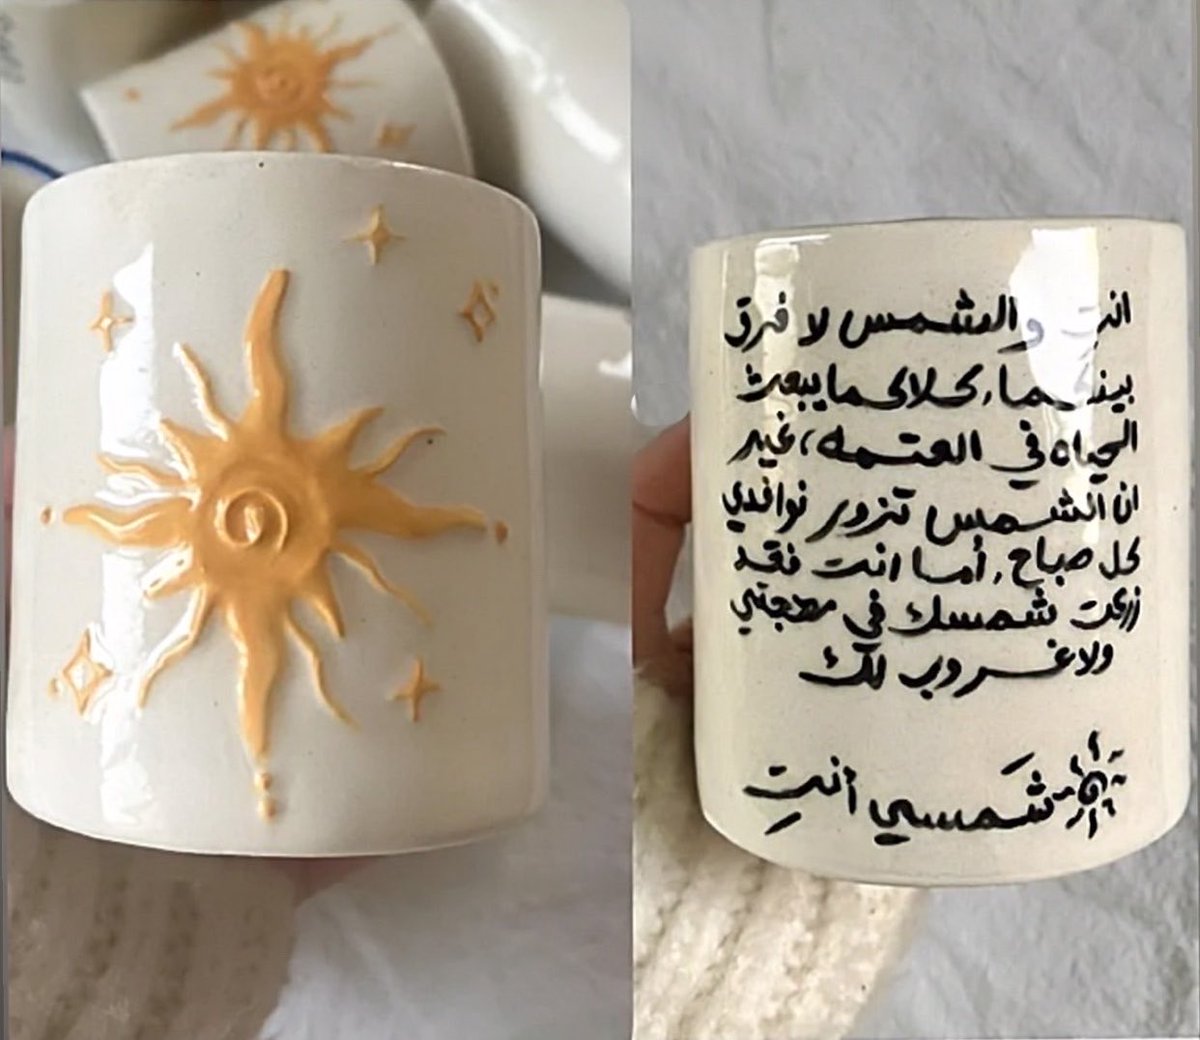 انتِ والشمس لا فرق
بينكما, كلاكما يبعث
الحياه في العتمه، غير
ان الشمس تزور نوافذي
كل صباح, أما انت فقد
زرعت شمسك في مهجتي
ولا غروب لك
شَمسي أنتِ